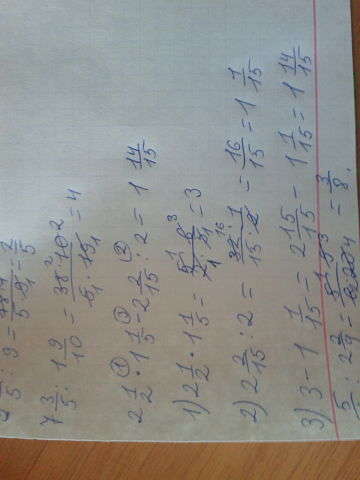 7 3/5 : 1 9/10 = 38² · 10² / 5₁ · 19₁ = 4
2 1/2 · 1 1/5 - 2 2/15 : 2 = 1 14/15
1) 2 1/2 · 1 1/5 = 5¹ · 6³ / 2₁ · 5₁ = 3
2) 2 2/15 : 2 = 32¹⁶ · 1 / 15 · 2 = 16/15 = 1 1/15
3) 3 - 1 1/15 = 2 15/15 - 1 1/15 = 1 14/15